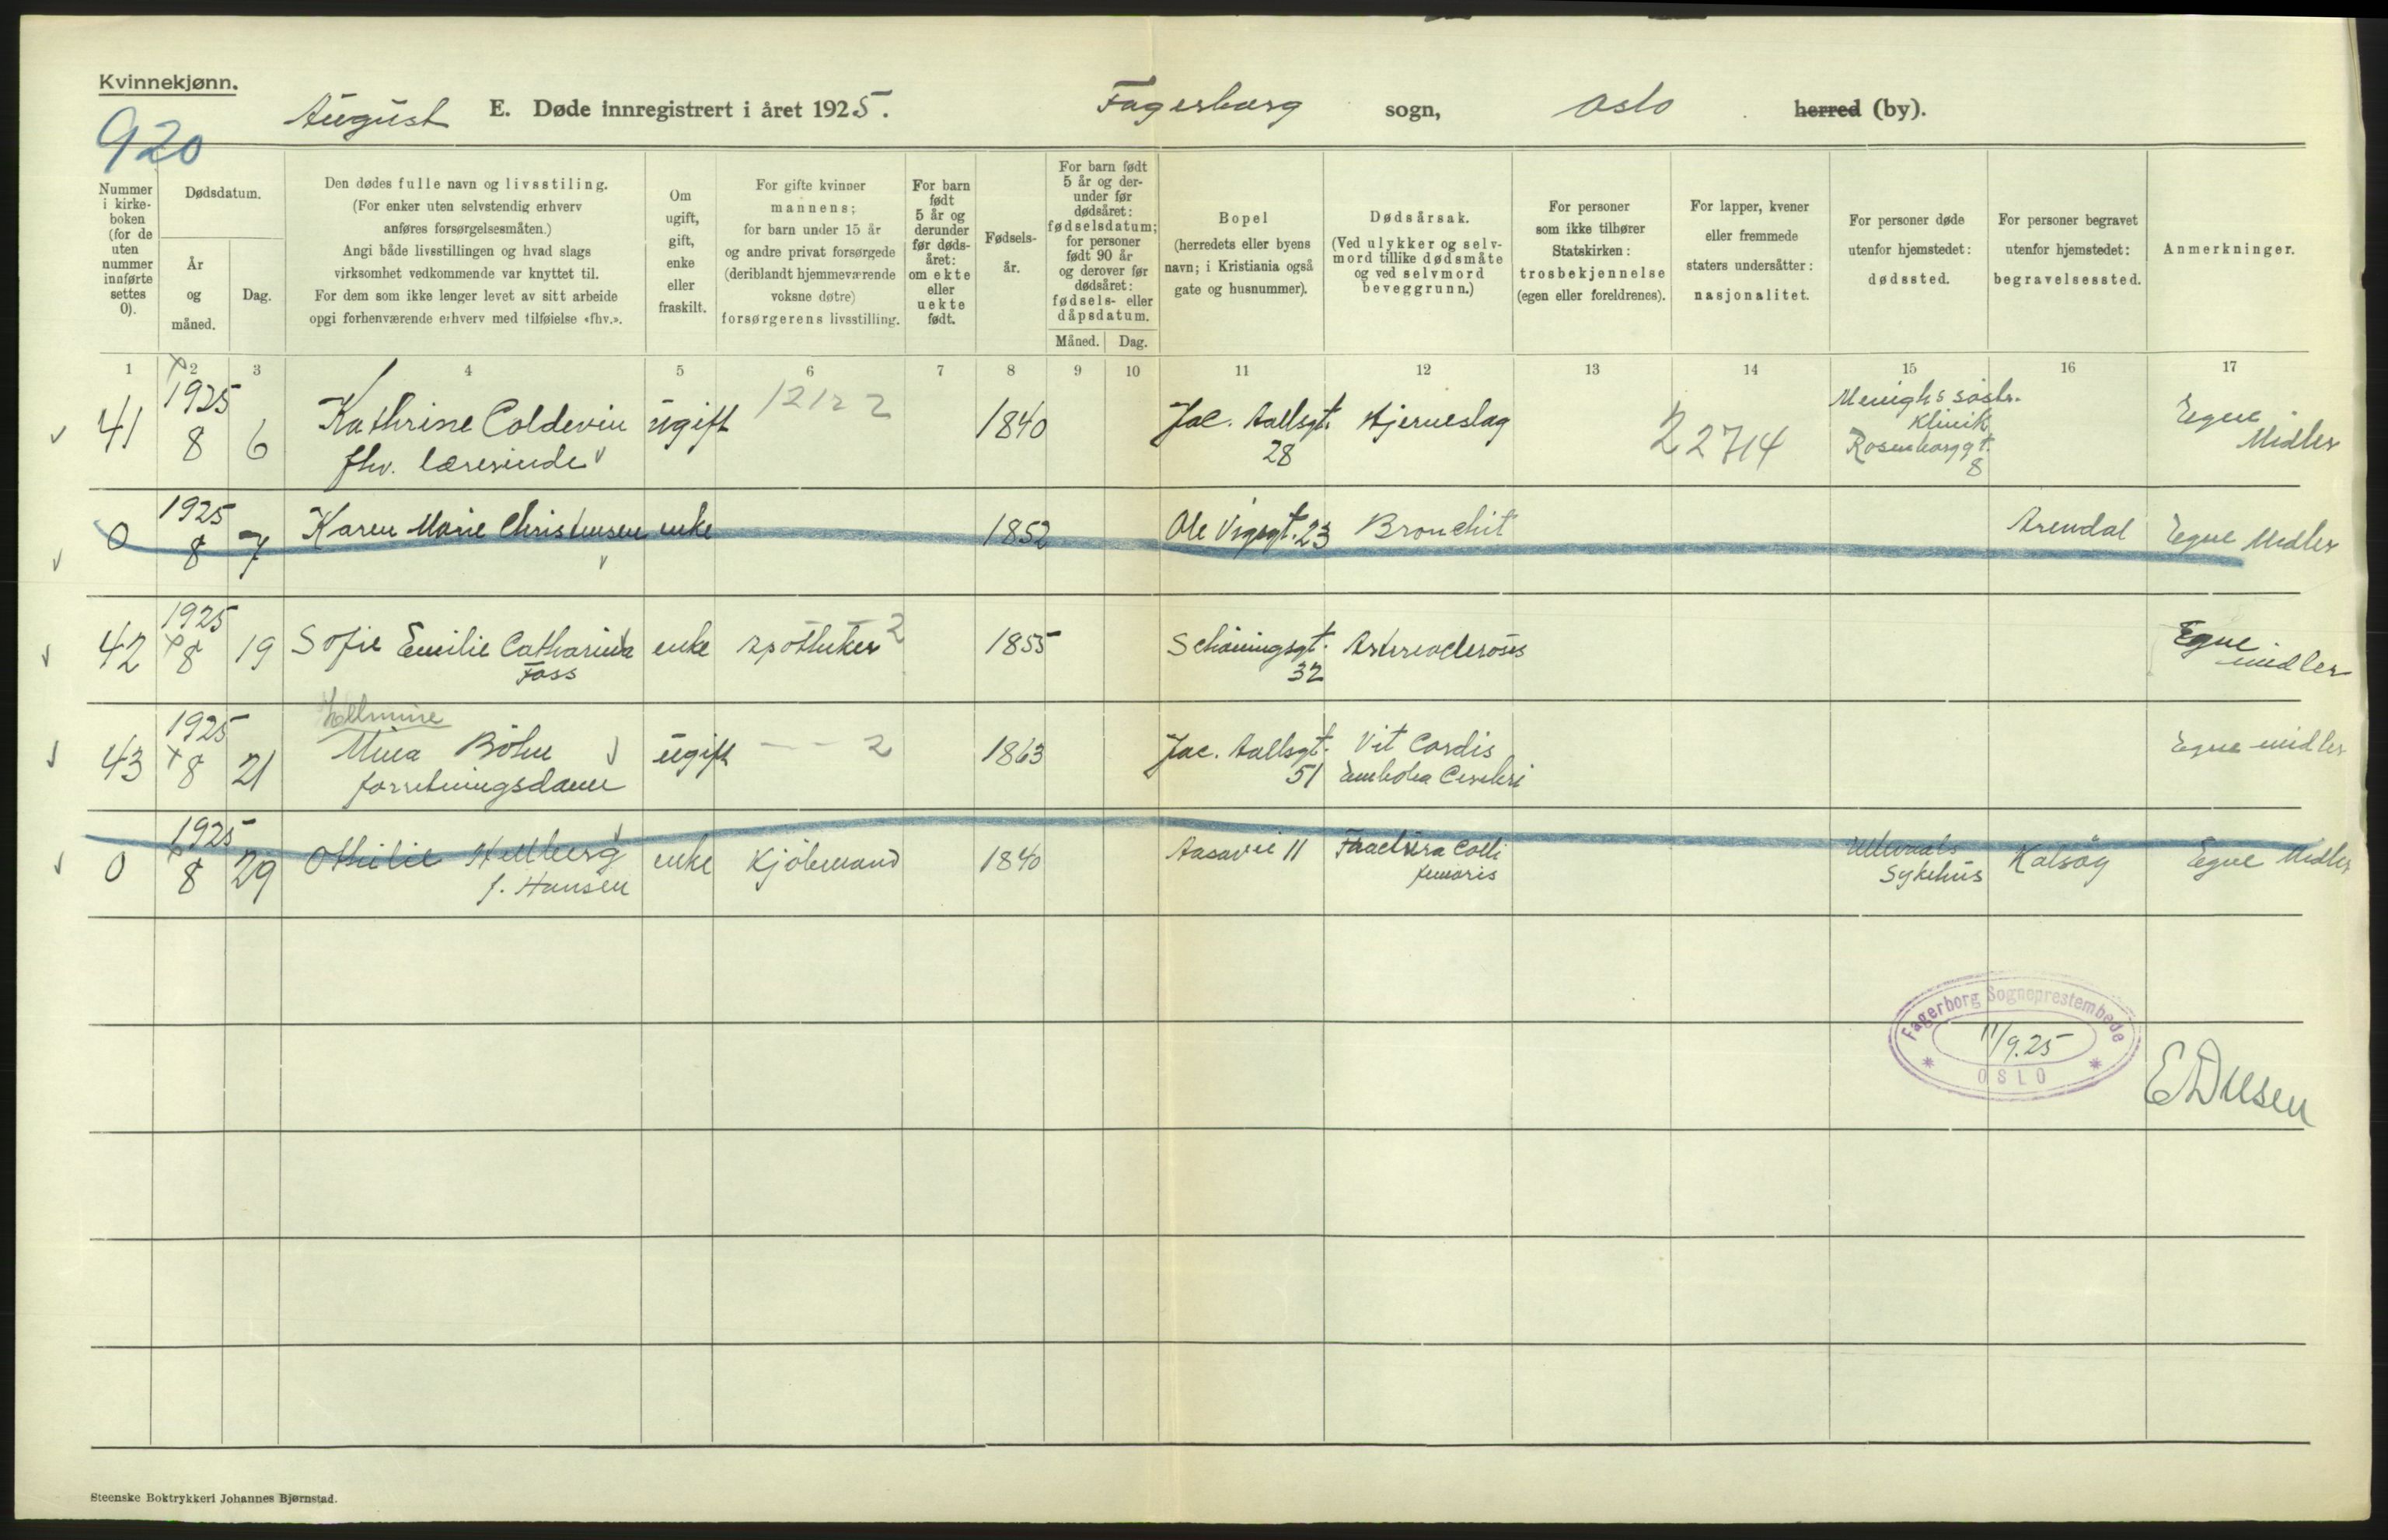 Kvinnekjønn.
920
August E. Døde innregistrert i året 1925. Fagerborg sogn, Oslo herred (by).
Nummer i kirke-boken (for de uten nummer innførte settes 0).
Dødsdatum.
År og måned.
Dag.
Den dødes fulle navn og livsstiling.
(For enker uten selvstendig erhverv
anføres forsørgelsesmåten.)
Angi både livsstillingen og hvad slags
virksomhet vedkommende var knyttet til.
For dem som ikke lenger levet av sitt arbeide
opgi forhenværende erhverv med tilføielse «fhv.».
Om ugift, gift, enke eller fraskilt.
For gifte kvinner
mannens;
for barn under 15 år
og andre privat forsørgede
(deriblandt hjemmeværende
voksne døtre)
forsørgerens livsstilling.
For barn født 5 år og derunder før døds-året: om ekte eller uekte født.
Fødsels-år.
For barn født 5 år og der-under før dødsåret: fødselsdatum; for personer født 90 år og derover før dødsåret: fødsels- eller dåpsdatum.
Måned. Dag.
Bopel
(herredets eller byens
navn; i Kristiania også
gate og husnummer).
Dødsårsak.
(Ved ulykker og selv-
mord tillike dødsmåte
og ved selvmord
beveggrunn.)
For personer
som ikke tilhører
Statskirken:
trosbekjennelse
(egen eller foreldrenes).
For lapper, kvener
eller fremmede
staters undersåtter:
nasjonalitet.
For personer døde
utenfor hjemstedet:
dødssted.
For personer begravet
utenfor hjemstedet:
begravelsessted.
Anmerkninger.
1 2 3 4 5 6 7 8 9 10 11 12 13 14 15 16 17
41 1925 8 6 Kathrine Coldevin ugift 1212 2 1840 Jac. Aallsgt. Hjerneslag 22714 Menighs søstr. Egne
fhv. lærerinde 28 Klinik Midler
Rosenborggt.
8
0 1925 8 7 Karen Marie Christensen enke 1852 Ole Vigsgt. 23 Bronchit Arendal Egne Midler
42 1925 8 19 Sofie Emilie Catharina enke apotheker 2 1855 Schøningsgt. Arteriosclerosis Egne
Foss 32 midler
43 1925 8 21 Mina Bøhn ugift 2 1863 Jac. Aallsgt. Vit Cordis Egne midler
forretningsdame 51 Embolia Cerebri
0 1925 8 29 Othilie Hellberg enke Kjøbmand 1840 Aasavei 11 Fractura Colli Ullevaals Kalsøy Egne Midler
f. Hansen femoris Sykehus
Fagerborg Sogneprestembede
11/9.25
OSLO
Steenske Boktrykkeri Johannes Bjørnstad.